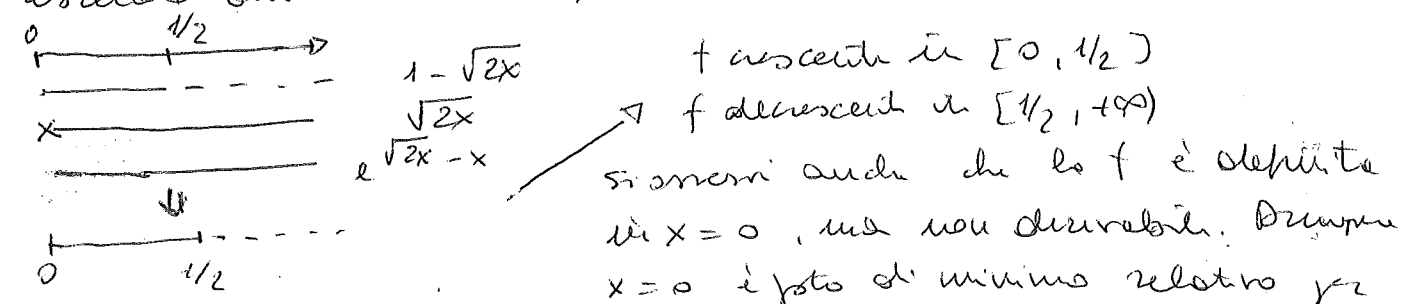 0 1/2
1 - √2x f crescente in [0, 1/2)
√2x f decrescente in [1/2, +∞)
e^(√2x - x) si osservi anche che la f è definita
in x = 0, ma non derivabile. Dunque
0 1/2 x = 0 è pto di minimo relativo per